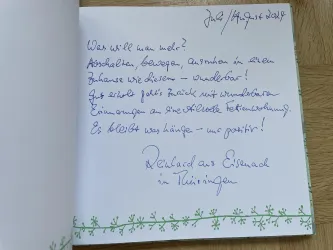 Juli/August 2024
Was will man mehr?
Abschalten, bewegen, ausruhen in einem
Zuhause wie diesem - wunderbar!
Gut erholt geht's zurück mit wunderbaren
Erinnerungen an eine stilvolle Ferienwohnung.
Es bleibt was hänge - nur positiv!
Reinhard aus Eisenach
in Thüringen